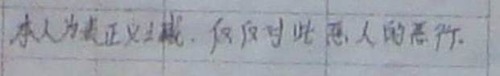 本人为表正义之感.仅仅对此恶人的恶行.